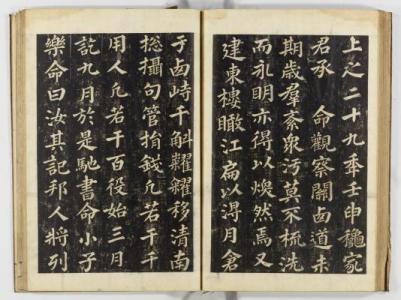 上之二十九秊壬申穐家
君承　命觀察關卤道未
期歲羣紊衆汚莫不梳洗
而永明亦得以煥然焉又
建東樓瞰江扁以得月倉
于卤峙千斛糶糴移清南
捴攝句管捐錢凡若干千
用人凡若干百役始三月
訖九月於是馳書命小子
樂命曰汝其記邦人將列